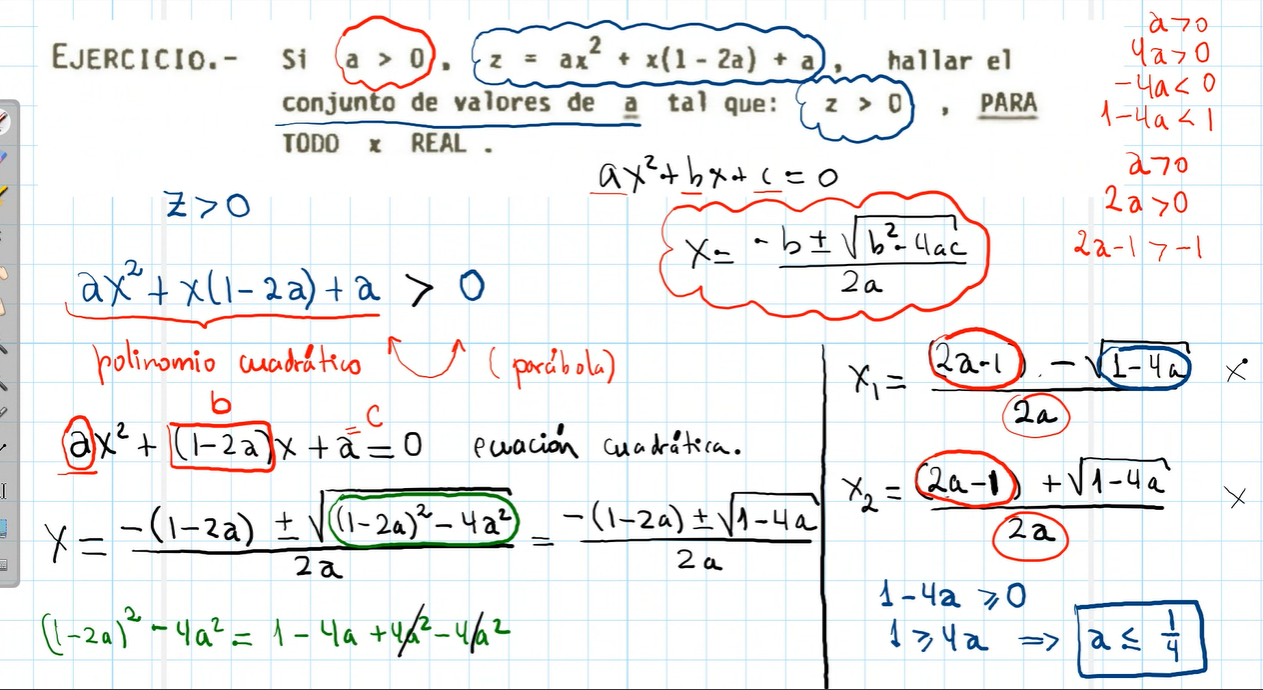 EJERCICIO.- Si a > 0, z = ax² + x(1 - 2a) + a, hallar el
conjunto de valores de a tal que: z > 0 , PARA
TODO x REAL .
a>0
4a>0
-4a<0
1-4a<1
a>0
2a>0
2a-1>-1
ax²+bx+c=0
x= -b±√b²-4ac
2a
z>0
ax²+x(1-2a)+a > 0
polinomio cuadrático (parábola)
b
=c
ax²+(1-2a)x+a=0 ecuación cuadrática.
x = -(1-2a) ± √((1-2a)²-4a²) = -(1-2a)±√1-4a
2a 2a
(1-2a)²-4a² = 1-4a+4a²-4a²
x₁= (2a-1) . -√1-4a x
2a
x₂= (2a-1) +√1-4a x
2a
1-4a ⩾0
1⩾4a => a≤ 1
4